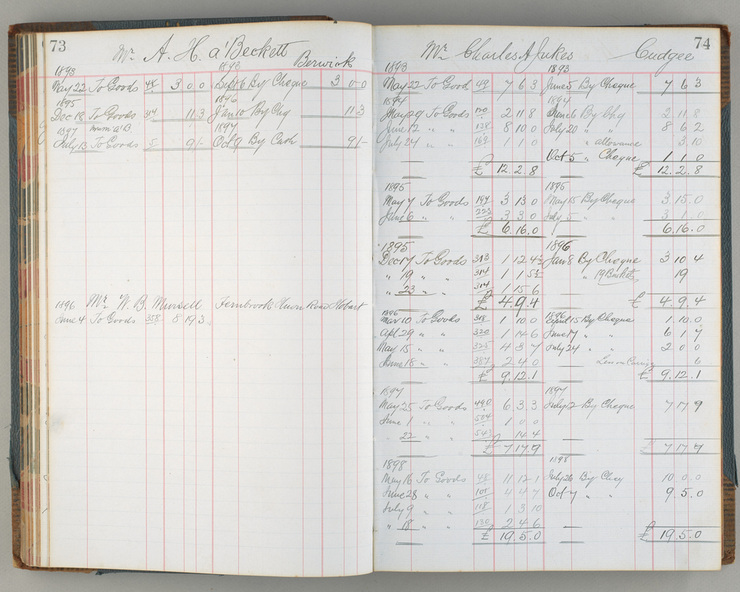 73
Mr. A. H. a'Beckett Berwick
1893 1893
May 22 To Goods 48 3 0 0 Sept 6 By Cheque 3 0 0
1895 1896
Dec 18 To Goods 314 11.3 Jan 10 By Chq 11.3
1897 1897
July 13 To Goods 9/- Oct 9 By Cash 9/-
1896 Mr. W. B. Fernbrook Huon Road Hobart
June 4 To Goods 358 8 19 3
74
Mr. Charles A Jukes Cudgee
1893 1893
May 22 To Goods 49 7 6 3 June 5 By Cheque 7 6 3
1894 1894
May 29 To Goods 2 11 8 June 6 By Chq 2 11 8
June 12 " " 128 8 10 0 July 20 " " 8 6 2
July 24 " " 163 1 1 0 " allowance 3.10
Oct 5 " Cheque 1 1 0
£ 12.2.8 £ 12.2.8
1895 1895
May 7 To Goods 197 3 13 0 May 15 By Cheque 3.15.0
June 6 " " 223 3 3 0 July 5 " " 3 1 0
£ 6.16.0 6.16.0
1895 1896
Dec 17 To Goods 313 1 12 4½ Jan 8 By Cheque 3 10 4
" 19 " " 314 1 1 5½ " 19
" 23 " " 314 1 15 6
£ 4 9 4 £ 4 9 4
1896 1896
Mar 10 To Goods 318 1 10 0 April 15 By Cheque 1.10.0
Apl 29 " " 320 1 14 6 June 17 " " 6 1 7
May 15 " " 325 4 3 7 July 24 " " 2 0 0
June 18 " " 387 2 4 0 6
£ 9.12.1 £ 9.12.1
1897 1897
May 25 To Goods 490 6 3 3 July 2 By Cheque 7 17 9
June 1 " " 504 1 0 0
" 22 " " 543 14.4
£ 7 17 9 £ 7 17 9
1898 1898
May 16 To Goods 11 12 1 July 26 By Chq 10 0 0
June 28 " " 101 4 4 7 Oct 7 " " 9 5.0
July 9 " " 118 1 3 10
" 18 " " 130 2 4 6
£ 19.5.0 £ 19.5.0